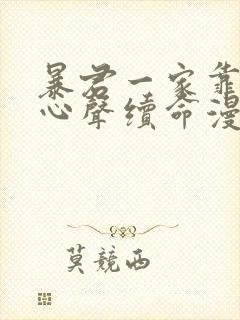 暴君一家靠
心聲續命漫
莫競西